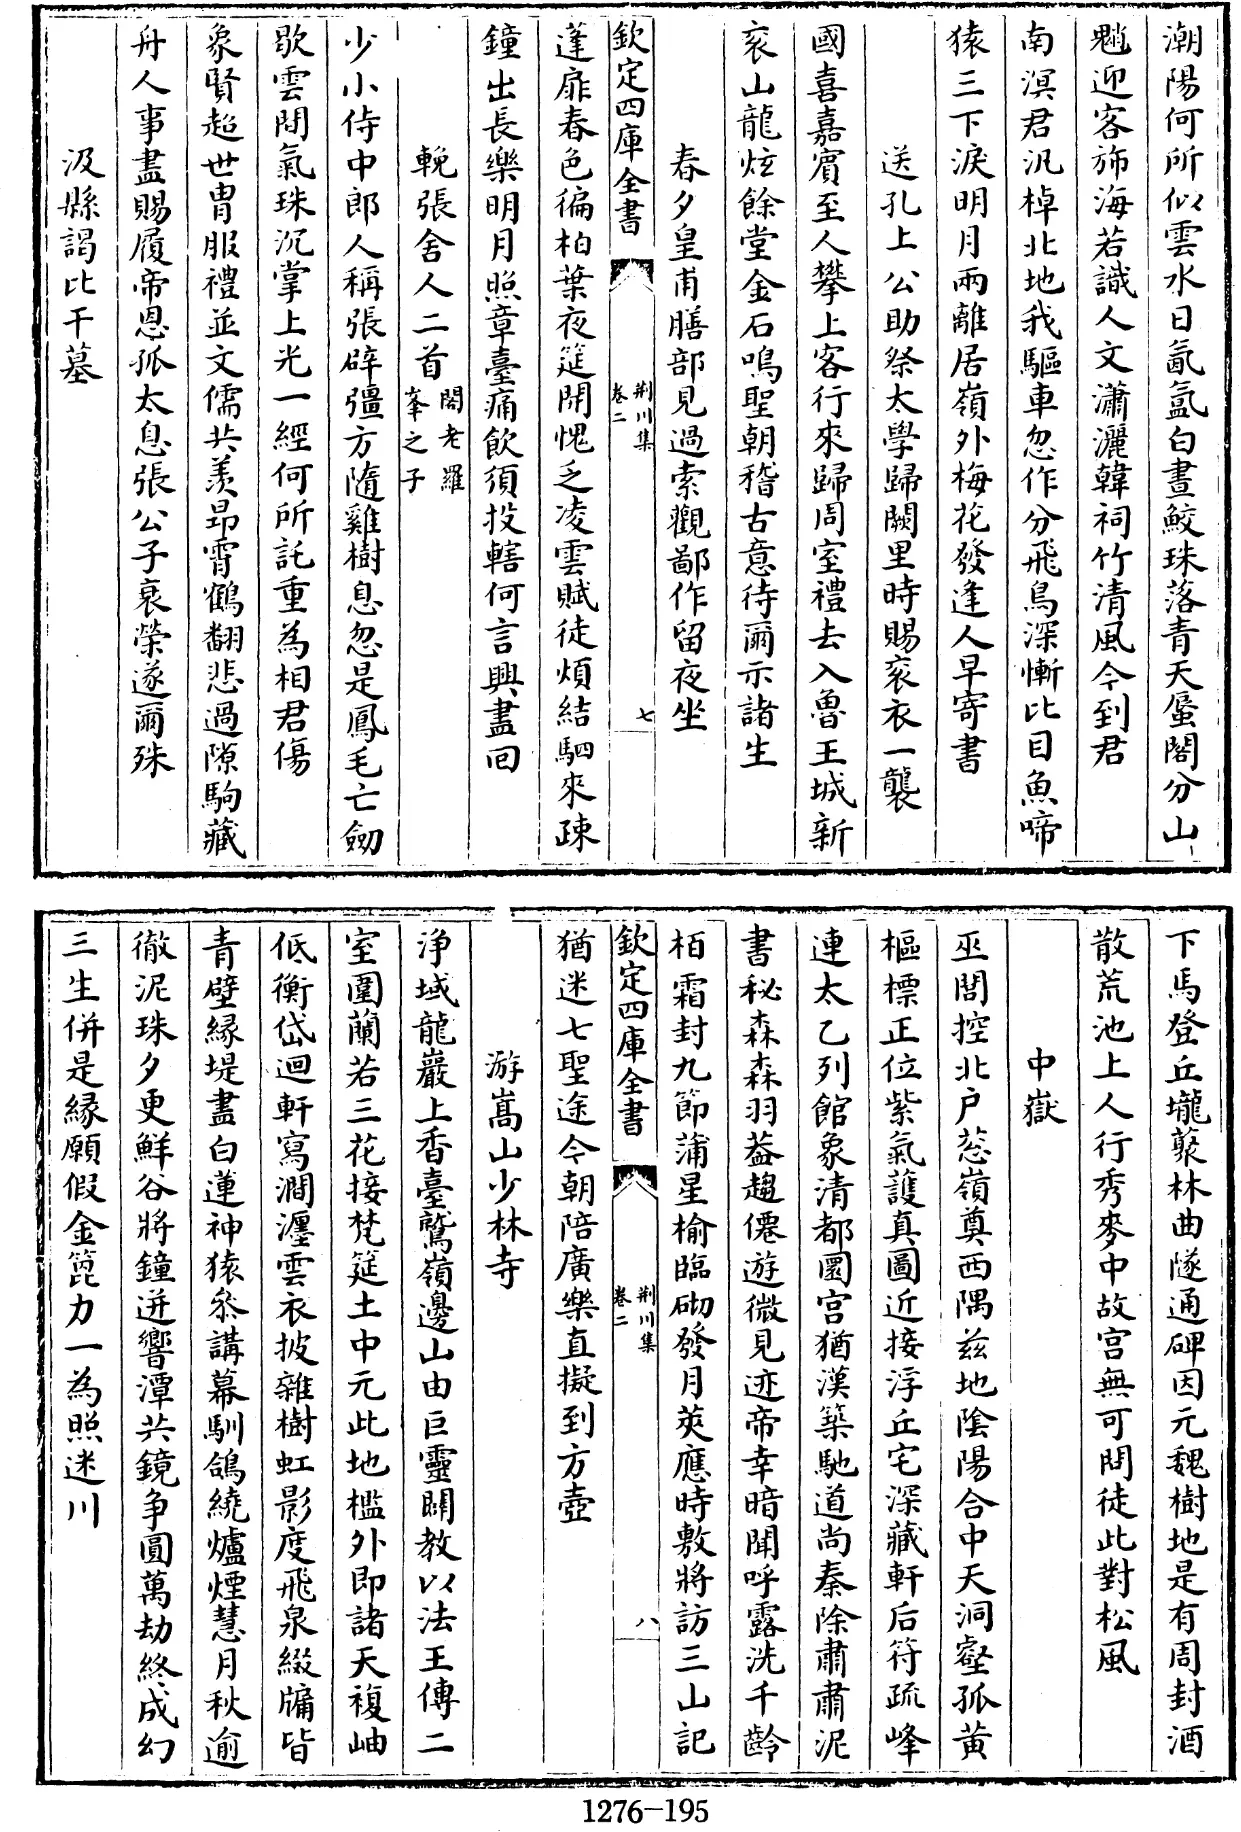 潮陽何所似雲水日氤氳白晝鮫珠落青天蜃閣分山
魈迎客斾海若識人文瀟灑韓祠竹清風今到君
南溟君汎棹北地我驅車忽作分飛鳥深慚比目魚啼
猿三下淚明月兩離居嶺外梅花發逢人早寄書
送孔上公助祭太學歸闕里時賜衮衣一襲
國喜嘉賓至人攀上客行來歸周室禮去入魯王城新
衮山龍炫餘堂金石鳴聖朝稽古意待爾示諸生
春夕皇甫膳部見過索觀鄙作留夜坐
欽定四庫全書
荆川集
卷二
七
蓬扉春色徧柏葉夜筵開愧乏凌雲賦徒煩結駟來疎
鐘出長樂明月照章臺痛飲須投轄何言興盡回
輓張舍人二首閣老羅
峯之子
少小侍中郎人稱張辟彊方隨雞樹息忽是鳳毛亡劒
歇雲間氣珠沉掌上光一經何所託重為相君傷
象賢超世胄服禮並文儒共羨昂霄鶴翻悲過隙駒藏
舟人事盡賜履帝恩孤太息張公子哀榮遂爾殊
汲縣謁比干墓
下馬登丘壠藂林曲隧通碑因元魏樹地是有周封酒
散荒池上人行秀麥中故宮無可問徒此對松風
中嶽
巫閭控北户葱嶺奠西隅兹地陰陽合中天洞壑孤黄
樞標正位紫氣護真圖近接浮丘宅深藏軒后符疏峰
連太乙列館象清都圜宫猶漢築馳道尚秦除肅肅泥
書秘森森羽葢趨僊遊微見迹帝幸暗聞呼露洗千齡
栢霜封九節蒲星榆臨砌發月莢應時敷將訪三山記
欽定四庫全書
荆川集
卷二
八
猶迷七聖途今朝陪廣樂直擬到方壺
游嵩山少林寺
淨域龍巖上香臺鷲嶺邊山由巨靈闢教以法王傳二
室圍蘭若三花接梵筵土中元此地檻外即諸天複岫
低衡岱迴軒寫澗瀍雲衣披雜樹虹影度飛泉綴牖皆
青壁緣堤盡白蓮神猿參講幕馴鴿繞爐煙慧月秋逾
徹泥珠夕更鮮谷將鐘迸響潭共鏡争圓萬劫終成幻
三生併是緣願假金篦力一為照迷川
1276-195